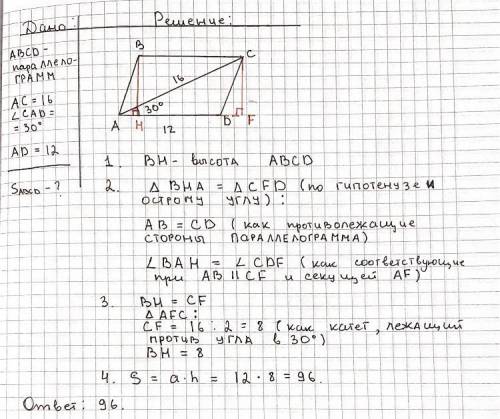 Дано:
Решение:
ABCD -
параллело-
грамм
AC = 16
∠CAD =
= 30°
AD = 12
SABCD - ?
B
C
16
30°
A
H
12
D
F
1. BH - высота ABCD
2. △ BHA = △ CFD (по гипотенузе и
острому углу):
AB = CD (как противолежащие
стороны параллелограмма)
∠BAH = ∠CDF (как соответствующие
при AB || CF и секущей AF)
3. BH = CF
△ AFC:
CF = 16 : 2 = 8 (как катет, лежащий
против угла в 30°)
BH = 8
4. S = a·h = 12 · 8 = 96.
Ответ: 96.